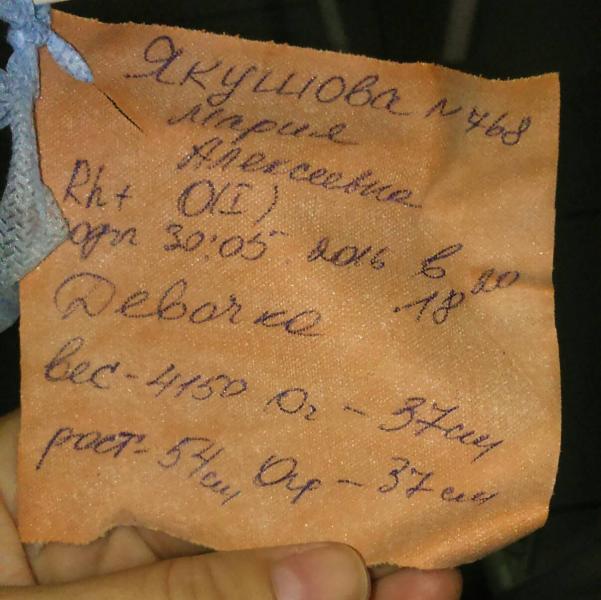 Якушова N 768
Мария
Алексеевна
Rh+ O(I)
30.05.2016 в 18 20
Девочка
вес - 4150 Ог - 37 см
рост - 54 см Огр - 37 см